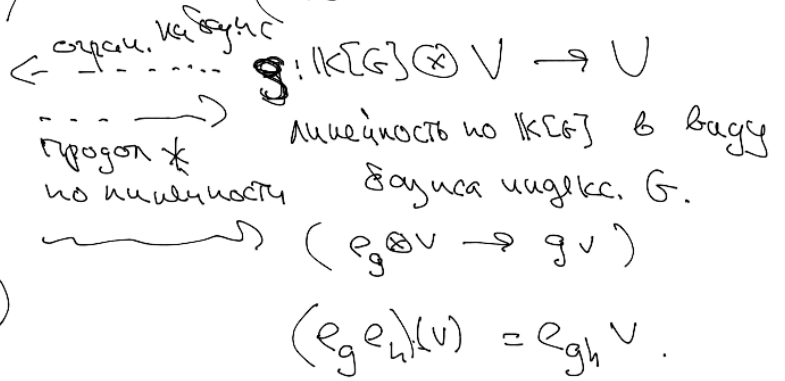 огран. на базис
g : K[G] ⊗ V → V
продолж
по линейности
линейность по K[G] в виду
базиса индекс. G.
(e_g ⊗ v → g v)
(e_g e_h)(v) = e_{gh} v.